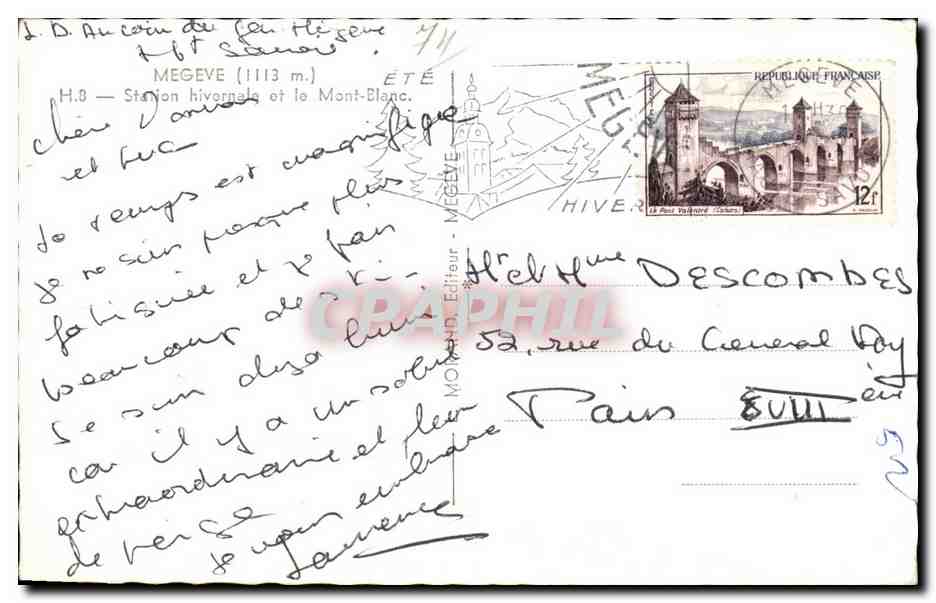 L. D. Au coin du feu Megève
Hte Savoie
74
MEGEVE (1113 m.)
H.8 — Station hivernale et le Mont-Blanc.
Chère
et Luc
Le temps est magnifique
je ne suis presque plus
fatiguée et je fais
beaucoup de ski.
Je suis déjà
car il y a un soleil
extraordinaire et plein
de neige
Je vous embrasse
Laurence
MORAND, Editeur - MEGEVE
ÉTÉ
HIVER
MEGÈVE
MEGEVE
SAVOIE
REPUBLIQUE FRANÇAISE
Le Pont Valentré (Cahors)
12f
CPAPHIL
Mr et Mme DESCOMBES
52, rue du General Foy
Paris VIII ème